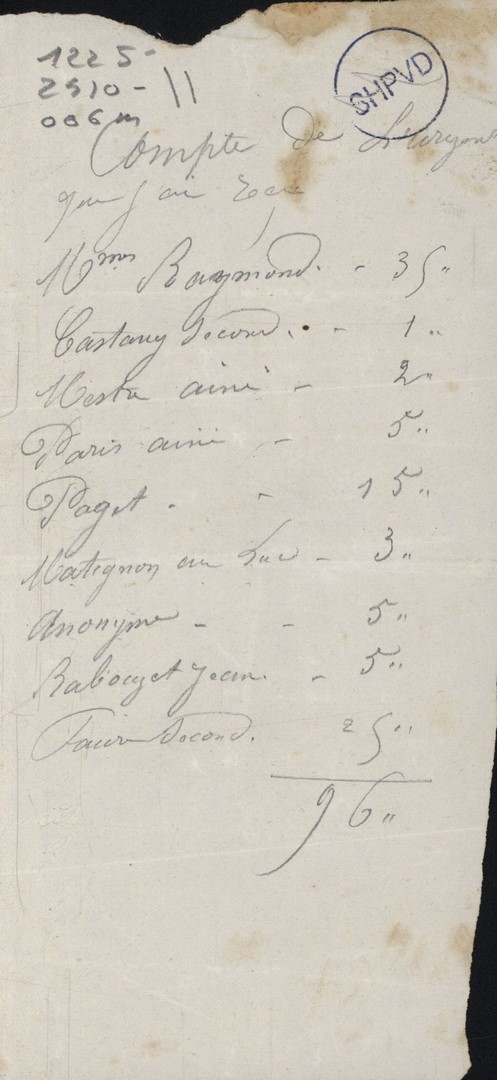 1225-
2910- 11
006m
SHPVD
Compte De L'argent
que j'ai Recu
Mme Raymond. - 35 "
Castany Second. - 1 "
Mestre ainé - 2 "
Paris ainé - 5 "
Paget. - 15 "
Matignon au Luc - 3 "
Anonyme - - 5 "
Rabouzet Jean. - 5 "
Faure Second. 25 "
96 "